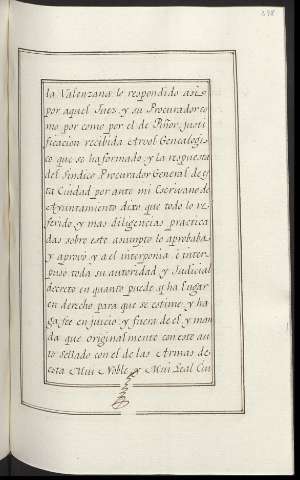 198
la Valenzana lo respondido asi
por aquel Juez y su Procurador co
mo por como por el de Piñor, justi
ficacion recibida Arvol Genealogi
co que se ha formado y la respuesta
del Sindico Procurador General de es
ta Ciudad por ante mi Escrivano de
Ayuntamiento dixo que todo lo re
ferido y mas diligencias practica
das sobre este asumpto lo aprobaba
y aprovó y a el interponia e inter
puso toda su autoridad y Judicial
decreto en quanto puede y ha lugar
en derecho para que se estime y ha
ga fee en juicio y fuera de el y man
da que originalmente con este au
to sellado con el de las Armas de
esta Mui Noble y Mui Leal Ciu